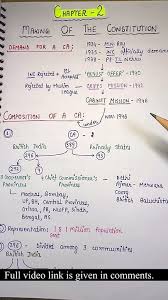 CHAPTER - 2
MAKING OF THE CONSTITUTION
DEMAND FOR A CA:
1934 - MN Roy
1935 - INC officially demands
1938 - Pt JL Nehru
INC Rejected + ML Accepted
'AUGUST OFFER' - 1940
Rejected by Muslim League
CRIPPS MISSION - 1942
CABINET MISSION - 1946
COMPOSITION OF A CA:
Nov 1946
British India
Princely states
296
93
292
4
Governor's Provinces
Chief Commissioner's Provinces
Delhi
Ajmer-Merwara
Coorg
British Baluchistan
Madras, Bombay,
UP, BH, Central Provinces,
Orissa, PB, NWFP, Sindh,
Bengal, AS.
Representation: 1 $ 1 Million Population
divided among 3 communities
British India
Full video link is given in comments.